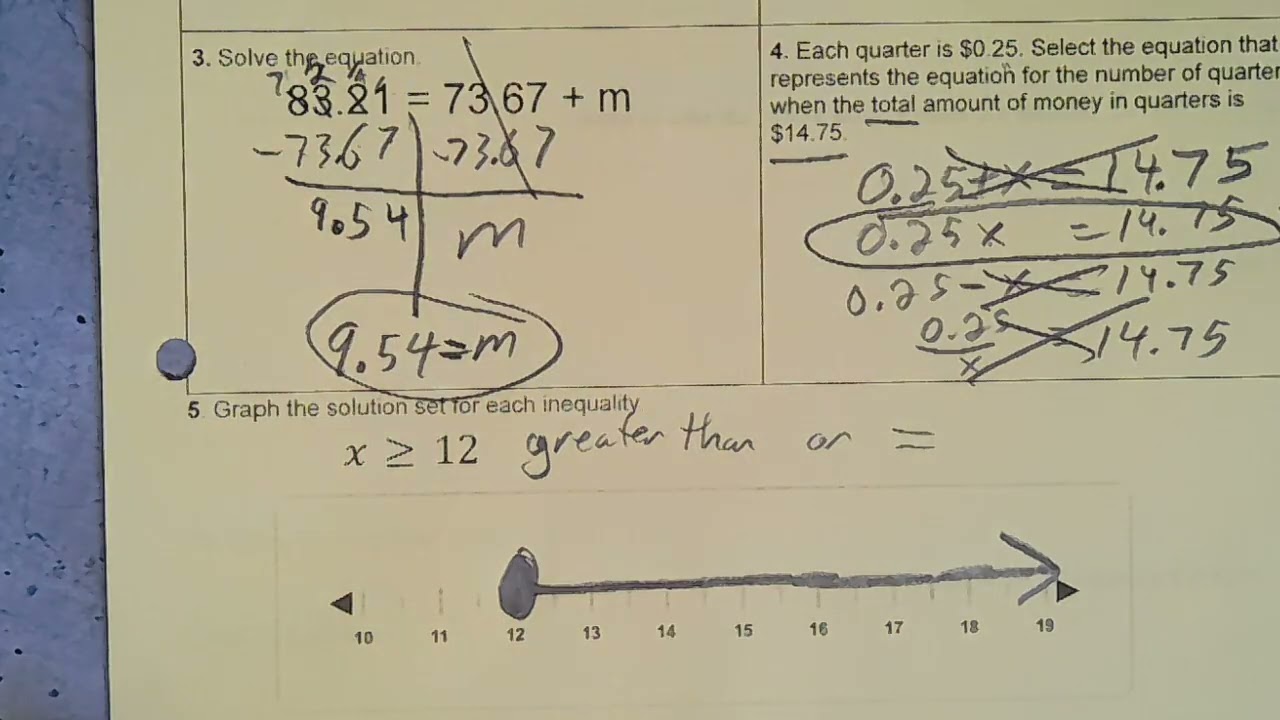 3. Solve the equation.
83.21 = 73.67 + m
-73.67 -73.67
9.54 m
9.54=m
4. Each quarter is $0.25. Select the equation that
represents the equation for the number of quarter
when the total amount of money in quarters is
$14.75.
0.25+x=14.75
0.25x =14.75
0.25-x=14.75
0.25/x=14.75
5. Graph the solution set for each inequality
x ≥ 12 greater than or =
10 11 12 13 14 15 16 17 18 19